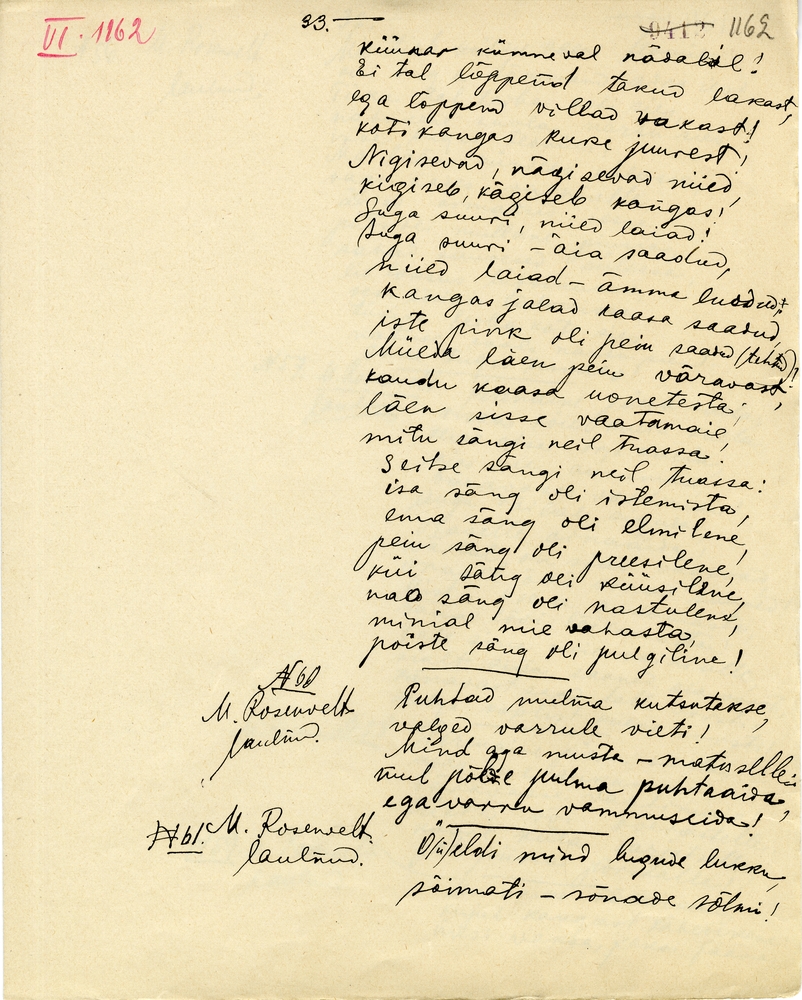 VI. 1162
33.
1162
küünar kümneval nädalil!
Ei tal lõppend takud lakast,
ega loppend villad vakast!
koti kangas kurke juurest!
Nigisevad, nägisevad niied,
kigiseb, kägiseb kangas!
Suga suuri, niied laiad!
Suga suuri – äia saadud,
niied laiad – ämma luodud;
kangas jalad kaasa saadud,
iste pink oli pein saadud (tehtud)!
Müeda läen pein väravast,
kaudu kaasa uonetesta;
läen sisse vaatamaie,
mitu sängi neil tuassa!
Seitse sängi neil tuassa:
isa säng oli istemista,
ema säng oli elmilene,
pein säng oli preesilene,
küi säng oli küüsiline,
nao säng oli nastulene,
minial mie vahasta,
poiste säng oli pulgiline!
N 60
M. Rosenvelt
laulnud.
Puhtad nuolma kutsutakse,
valged varrule vieti!
Mind aga musta – matusellei:
mul põlde pulma puhtaaida,
ega varru vammuseida!
N 61. M. Rosenvelt
laulnud.
O(ü)teldi mind lugude lukku,
sõimati – sõnade sõlmi!